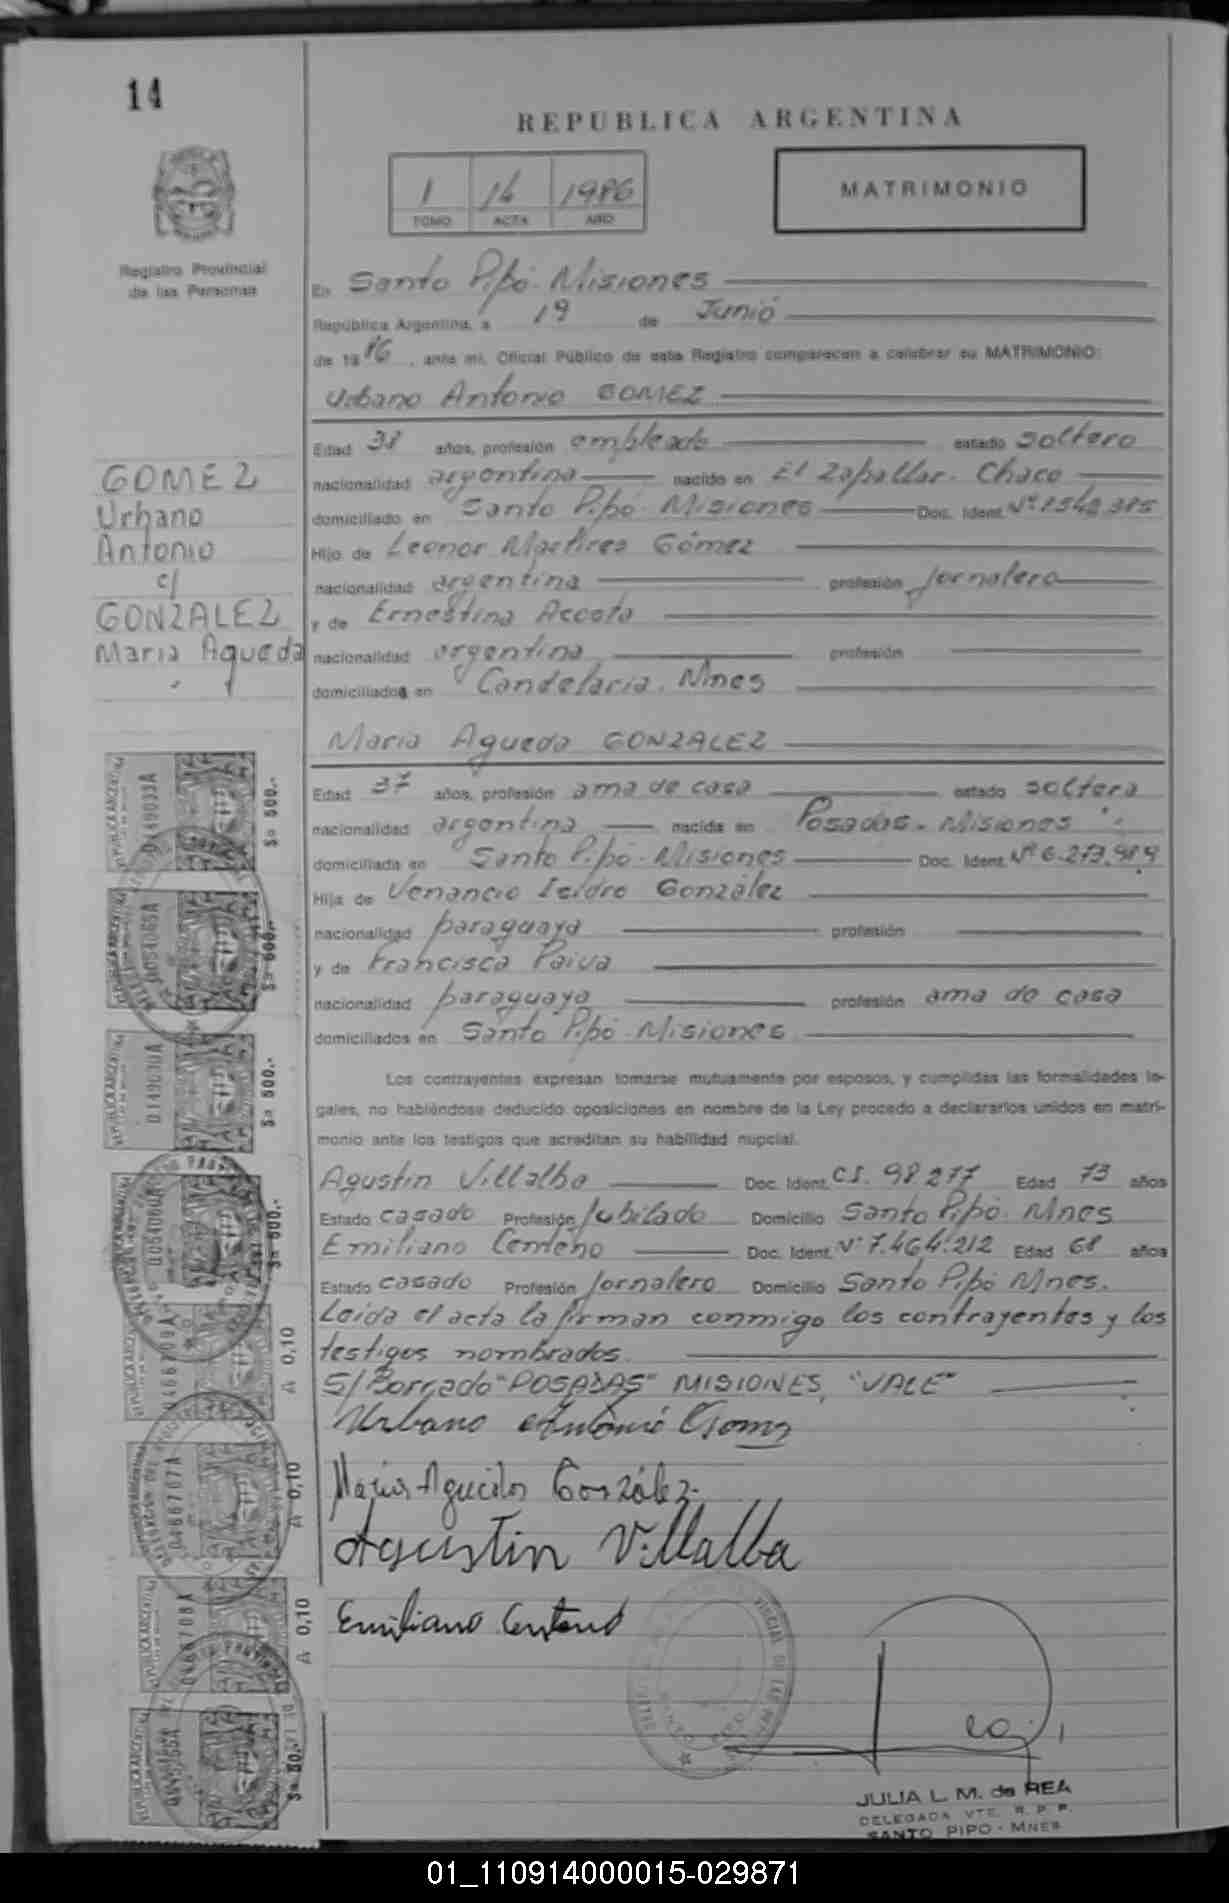 14
REPUBLICA ARGENTINA
1 14 1986
TOMO ACTA AÑO
MATRIMONIO
Registro Provincial
de las Personas
En Santo Pipó - Misiones
República Argentina, a 19 de Junio
de 1986, ante mí, Oficial Público de este Registro comparecen a celebrar su MATRIMONIO:
Urbano Antonio GOMEZ
Edad 38 años, profesión empleado estado soltero
nacionalidad argentina nacido en El Zapallar - Chaco
domiciliado en Santo Pipó - Misiones Doc. Ident. Nº
Hijo de Leonor Martires Gómez
nacionalidad argentina profesión Jornalero
y de Ernestina Accosta
nacionalidad argentina profesión
domiciliados en Candelaria. Mnes
GOMEZ
Urbano
Antonio
c/
GONZALEZ
Maria Agueda
Maria Agueda GONZALEZ
Edad 37 años, profesión ama de casa estado soltera
nacionalidad argentina nacida en Posadas - Misiones
domiciliada en Santo Pipó - Misiones Doc. Ident. Nº 6.273.989
Hija de Venancio Isidro González
nacionalidad paraguaya profesión
y de Francisca Paiva
nacionalidad paraguaya profesión ama de casa
domiciliados en Santo Pipó - Misiones
Los contrayentes expresan tomarse mutuamente por esposos, y cumplidas las formalidades le-
gales, no habiéndose deducido oposiciones en nombre de la Ley procedo a declararlos unidos en matri-
monio ante los testigos que acreditan su habilidad nupcial.
Agustin Villalba Doc. Ident. C.I. 98277 Edad 73 años
Estado casado Profesión Jubilado Domicilio Santo Pipó - Mnes
Emiliano Centeno Doc. Ident. Nº 7.464.212 Edad 68 años
Estado casado Profesión Jornalero Domicilio Santo Pipó Mnes.
Leida el acta la firman conmigo los contrayentes y los
testigos nombrados.
S/Borrado "POSADAS" MISIONES, "VALE"
Urbano Antonio Gomez
Maria Agueda González
Agustin Villalba
Emiliano Centeno
JULIA L. M. de REA
DELEGADA VTE. R. P. P.
SANTO PIPO - MNES
REPUBLICA ARGENTINA
0149033A
$a 500.-
$a 500.-
0149030A
$a 500.-
$a 500.-
A 0,10
0466707A
A 0,10
0466708A
A 0,10
01_110914000015-029871